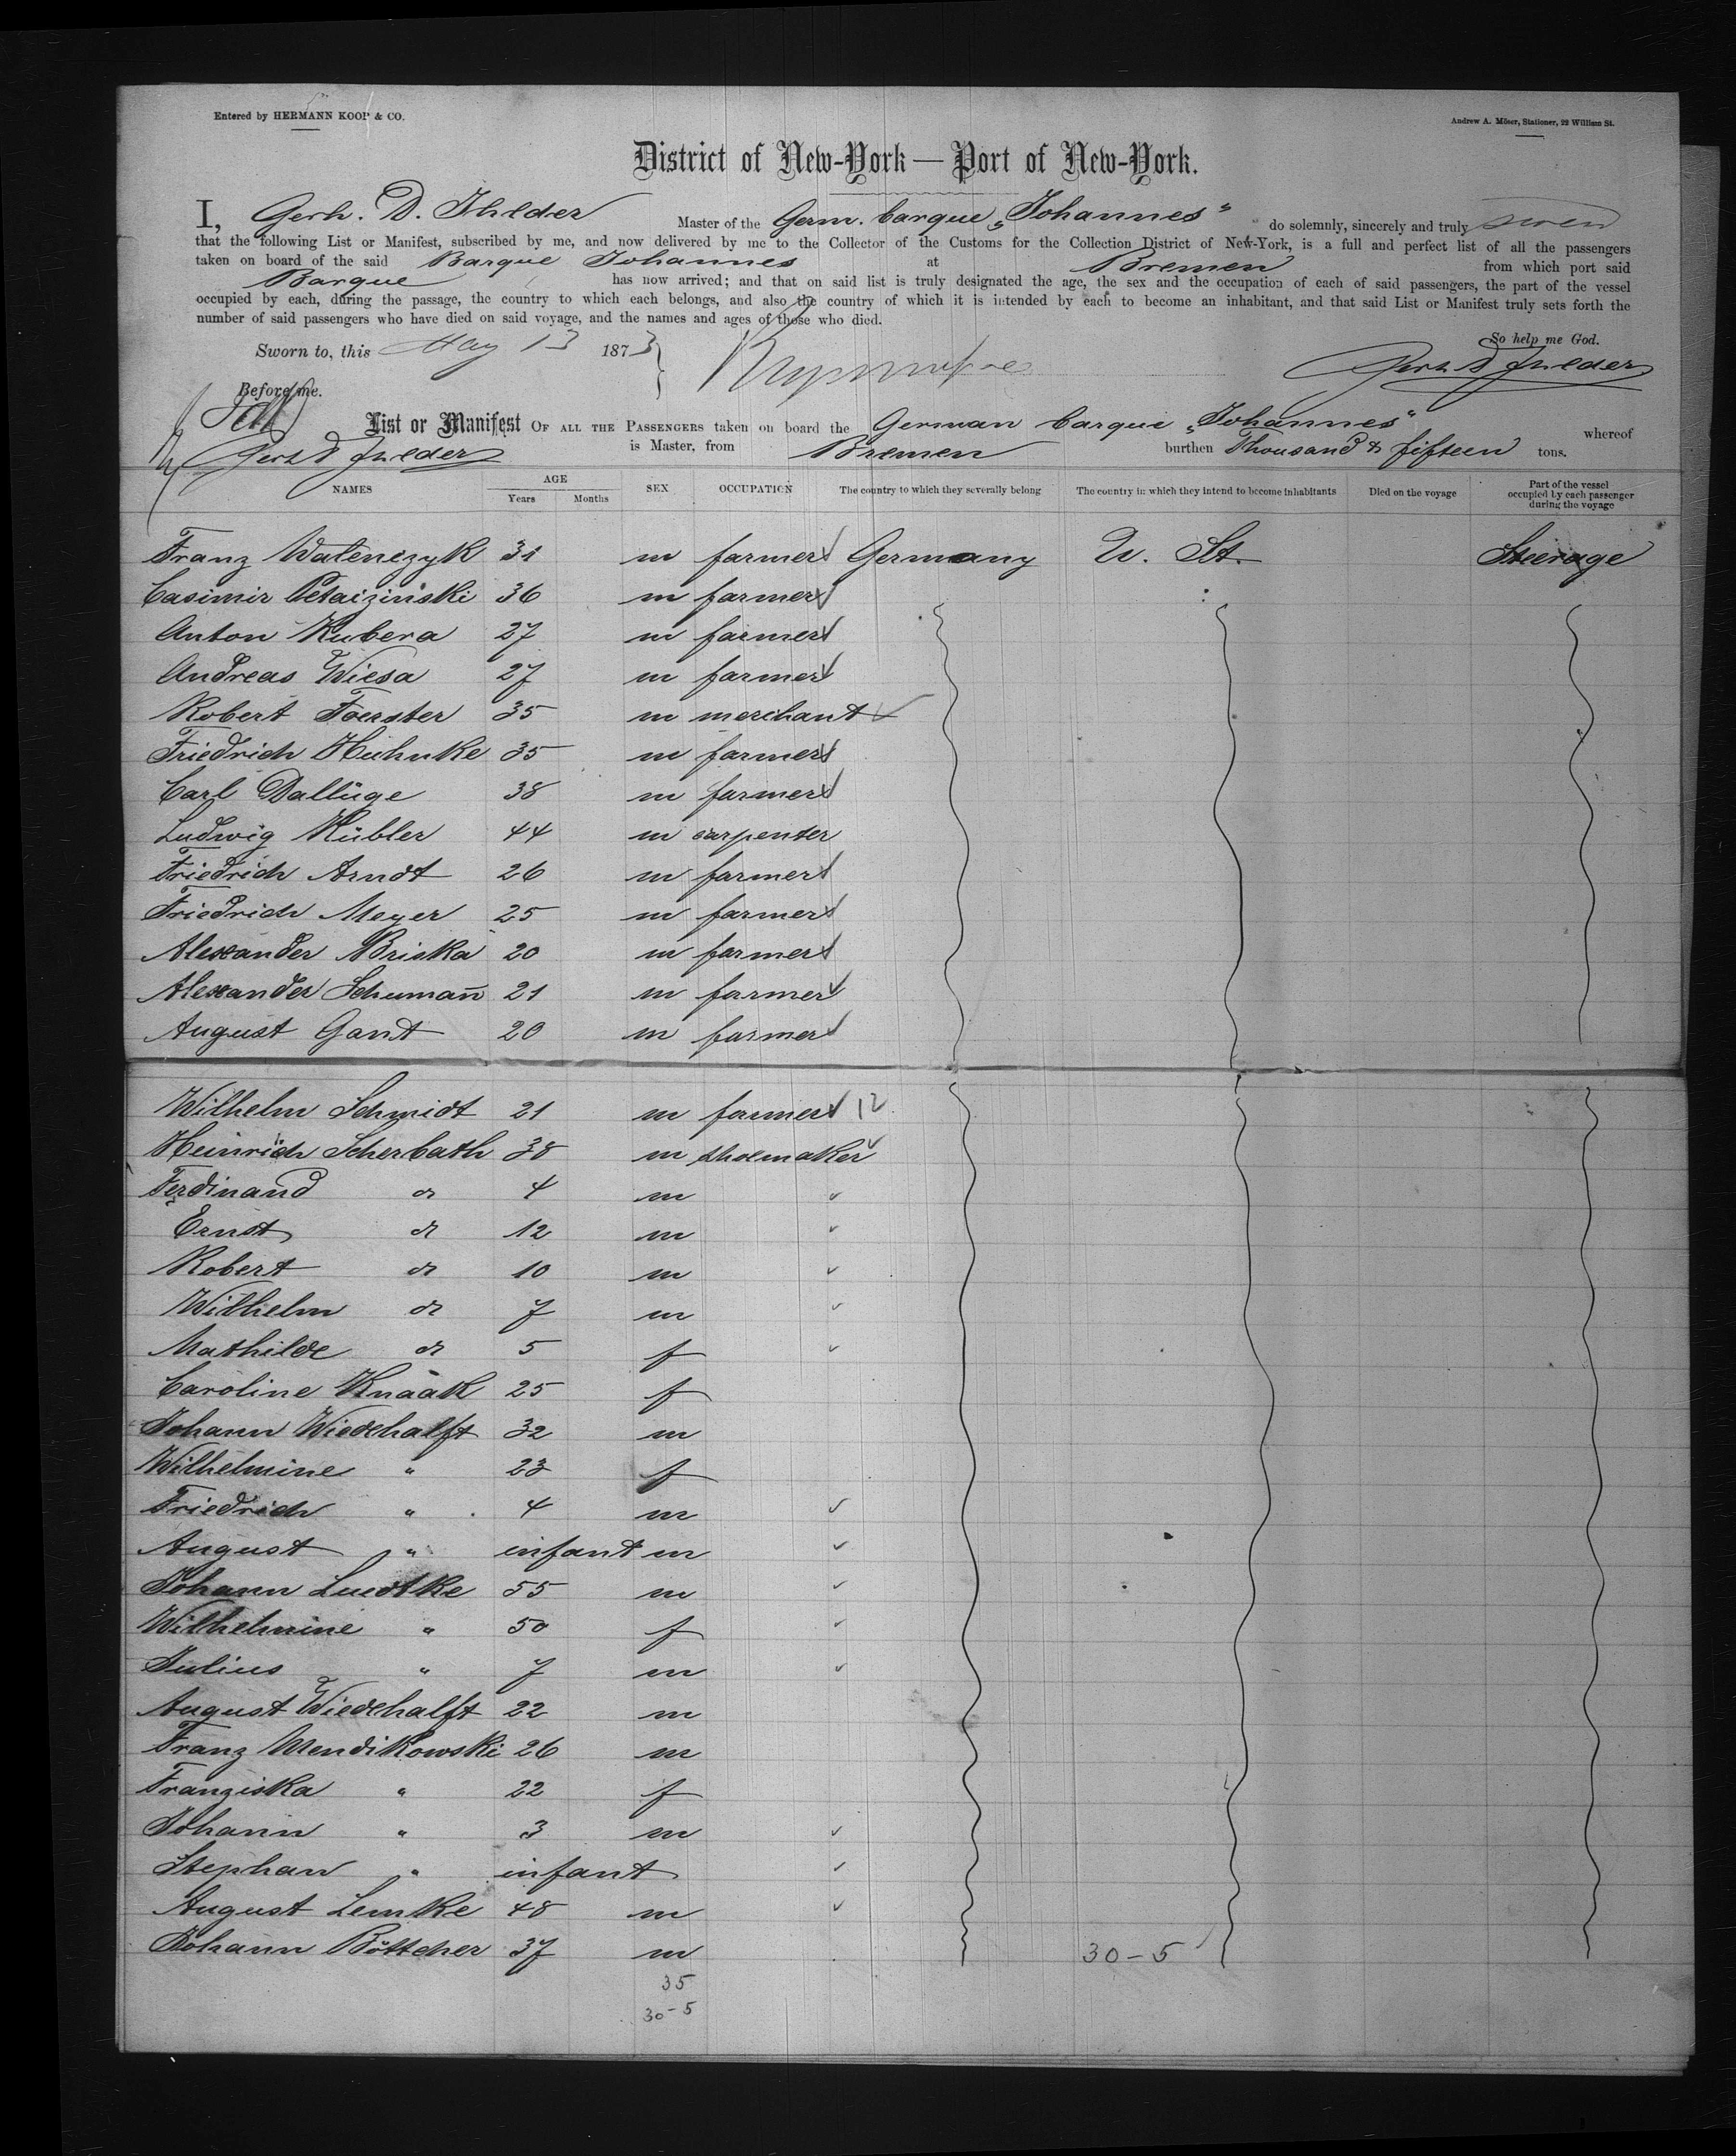 Entered by HERMANN KOOP & CO.
Andrew A. Möser, Stationer, 22 William St.
District of New-York — Port of New-York.
I, Gerh. D. Ihlder Master of the Germ. barque „Johannes" do solemnly, sincerely and truly
that the following List or Manifest, subscribed by me, and now delivered by me to the Collector of the Customs for the Collection District of New-York, is a full and perfect list of all the passengers
taken on board of the said Barque Johannes at Bremen from which port said
Barque has now arrived; and that on said list is truly designated the age, the sex and the occupation of each of said passengers, the part of the vessel
occupied by each, during the passage, the country to which each belongs, and also the country of which it is intended by each to become an inhabitant, and that said List or Manifest truly sets forth the
number of said passengers who have died on said voyage, and the names and ages of those who died.
So help me God.
Sworn to, this May 13 1873
Gerh D Ihlder
Before me.
List or Manifest OF ALL THE PASSENGERS taken on board the German barque „Johannes" whereof
Gerh D Ihlder is Master, from Bremen burthen Thousand & fifteen tons.
NAMES AGE Years Months SEX OCCUPATION The country to which they severally belong The country in which they intend to become inhabitants Died on the voyage Part of the vessel occupied by each passenger during the voyage
Franz Walenczyk 31 m farmer Germany U. St. Steerage
Casimir 36 m farmer
Anton Kubera 27 m farmer
Andreas Wiesa 27 m farmer
Robert Foerster 35 m merchant
Friedrich Huhnke 35 m farmer
Carl Dallüge 38 m farmer
Ludwig Kübler 44 m carpenter
Friedrich Arndt 26 m farmer
Friedrich Meyer 25 m farmer
Alexander Briska 20 m farmer
Alexander Schuman̄ 21 m farmer
August Gant 20 m farmer
Wilhelm Schmidt 21 m farmer 12
Heinrich Scherbath 38 m shoemaker
Ferdinand do 4 m
Ernst do 12 m
Robert do 10 m
Wilhelm do 7 m
Mathilde do 5 f
Caroline Knaak 25 f
Johann Wiedehalft 32 m
Wilhelmine " 23 f
Friedrich " 4 m
August " infant m
Johann Luedtke 55 m
Wilhelmine " 50 f
Julius " 7 m
August Wiedehalft 22 m
Franz Mendikowski 26 m
Franziska " 22 f
Johann " 3 m
Stephan " infant
August Lemke 48 m
Johann Böttcher 37 m 30-5
35
30-5